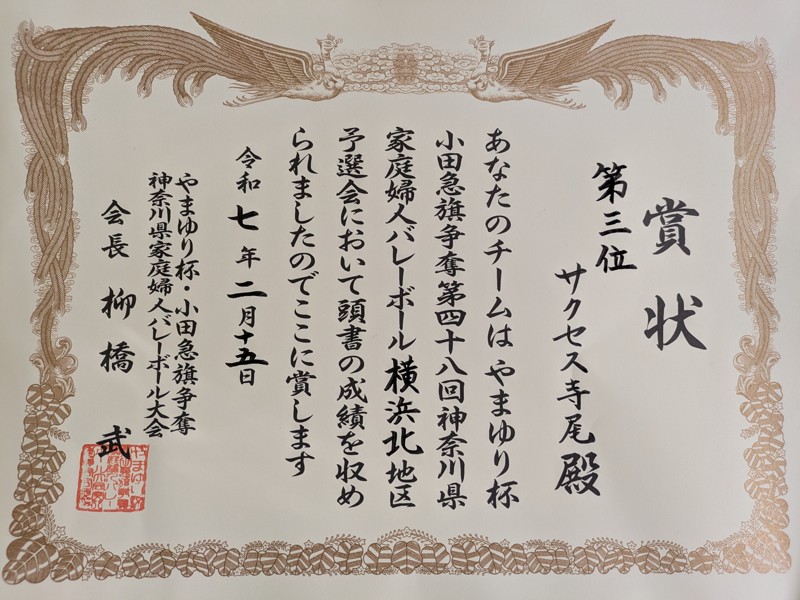 賞状
第三位
サクセス寺尾殿
あなたのチームは やまゆり杯
小田急旗争奪第四十八回神奈川県
家庭婦人バレーボール横浜北地区
予選会において頭書の成績を収め
られましたのでここに賞します
令和七年二月十五日
やまゆり杯・小田急旗争奪
神奈川県家庭婦人バレーボール大会
会長 柳橋 武